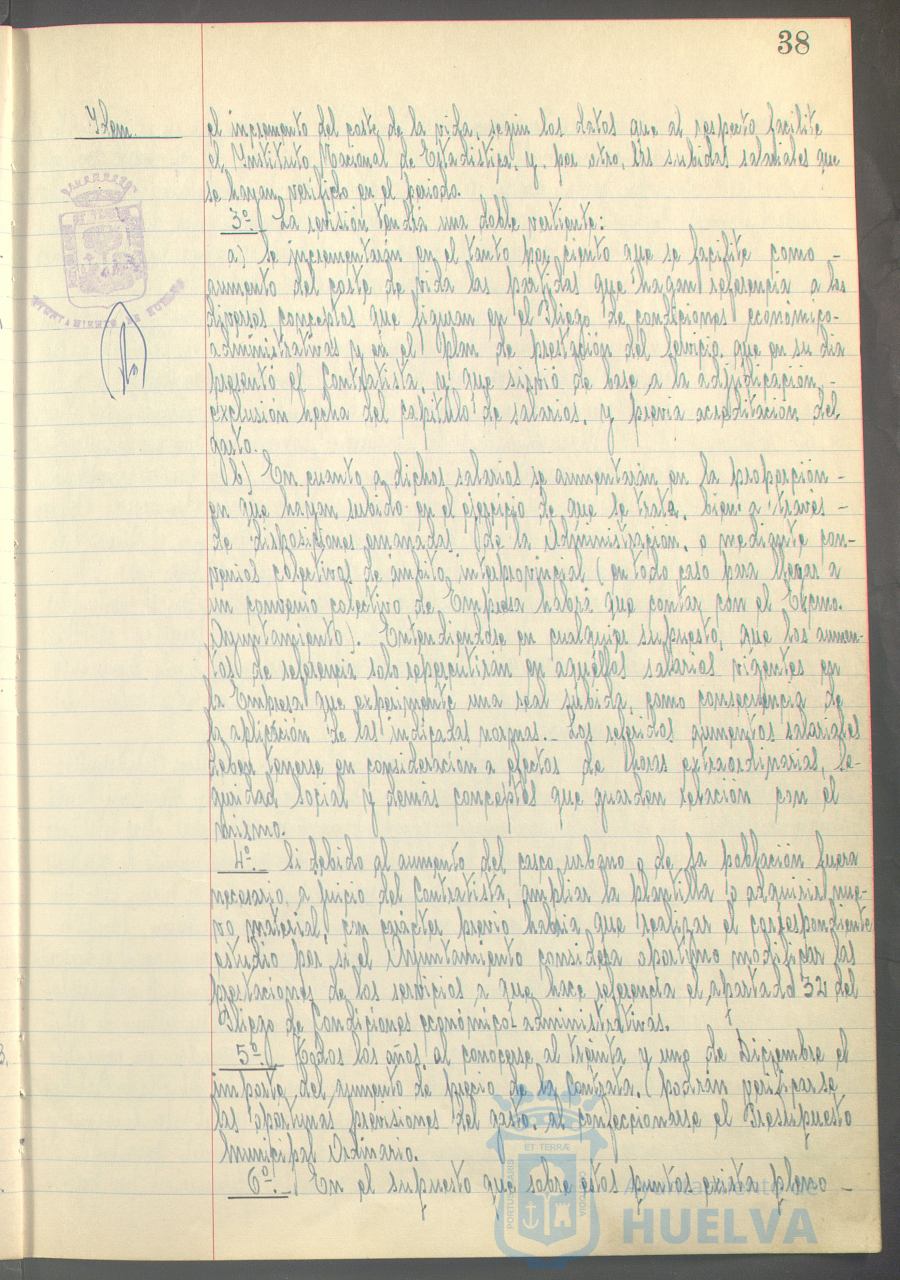 38
Idem.
el incremento del coste de la vida, según los datos que al respecto facilite
el Instituto Nacional de Estadística, y, por otro, las subidas salariales que
se hayan verificdo en el período.
3º.- La revisión tendía una doble vertiente:
a) Se incrementarán en el tanto por ciento que se facilite como -
aumento del coste de vida las partidas que hagan referencia a los
diversos conceptos que figuran en el Pliego de condiciones económico-
administrativas y en el Plan de prestación del Servicio que en su dia
presentó el Contratista, y que sirvió de base a la adjudicación, -
exclusión hecha del capítulo de salarios, y previa acreditación del
gasto.
b) En cuanto a dichos salarios se aumentarán en la proporción -
en que hayan subido en el ejercicio de que se trata, bien a través -
de disposiciones emanadas de la Administración, o mediante con-
venios colectivos de ámbito interprovincial (en todo caso para llegar a
un convenio colectivo de Empresa habrá que contar con el Excmo.
Ayuntamiento). Entendiendose en cualquier supuesto, que los aumen-
tos de referencia solo repercutirán en aquéllos salarios vigentes en
la Empresa que experimente una real subida, como consecuencia de
la aplicación de las indicadas normas.- Los referidos aumentos salariales
deben tenerse en consideración a efectos de horas extraordinarias, Se-
guridad Social y demás conceptos que guarden relación con el
mismo.
4º.- Si debido al aumento del casco urbano o de la población fuera
necesario, a juicio del Contratista, ampliar la plantilla o adquirir nue-
vo material, con carácter previo habría que realizar el correspondiente
estudio por si el Ayuntamiento considera oportuno modificar las
prestaciones de los servicios a que hace referencia el apartado 32 del
Pliego de Condiciones económico-administrativas.
5º.- Todos los años al conocerse al treinta y uno de Diciembre el
importe del aumento de precio de la Contrata, podrán verificarse
las oportunas previsiones del gasto, al confeccionarse el Presupuesto
Municipal Ordinario.
6º.- En el supuesto que sobre estos puntos exista pleno -
ET TERRÆ
PORTUS MARIS
CUSTODIA
Ayuntamiento de
HUELVA